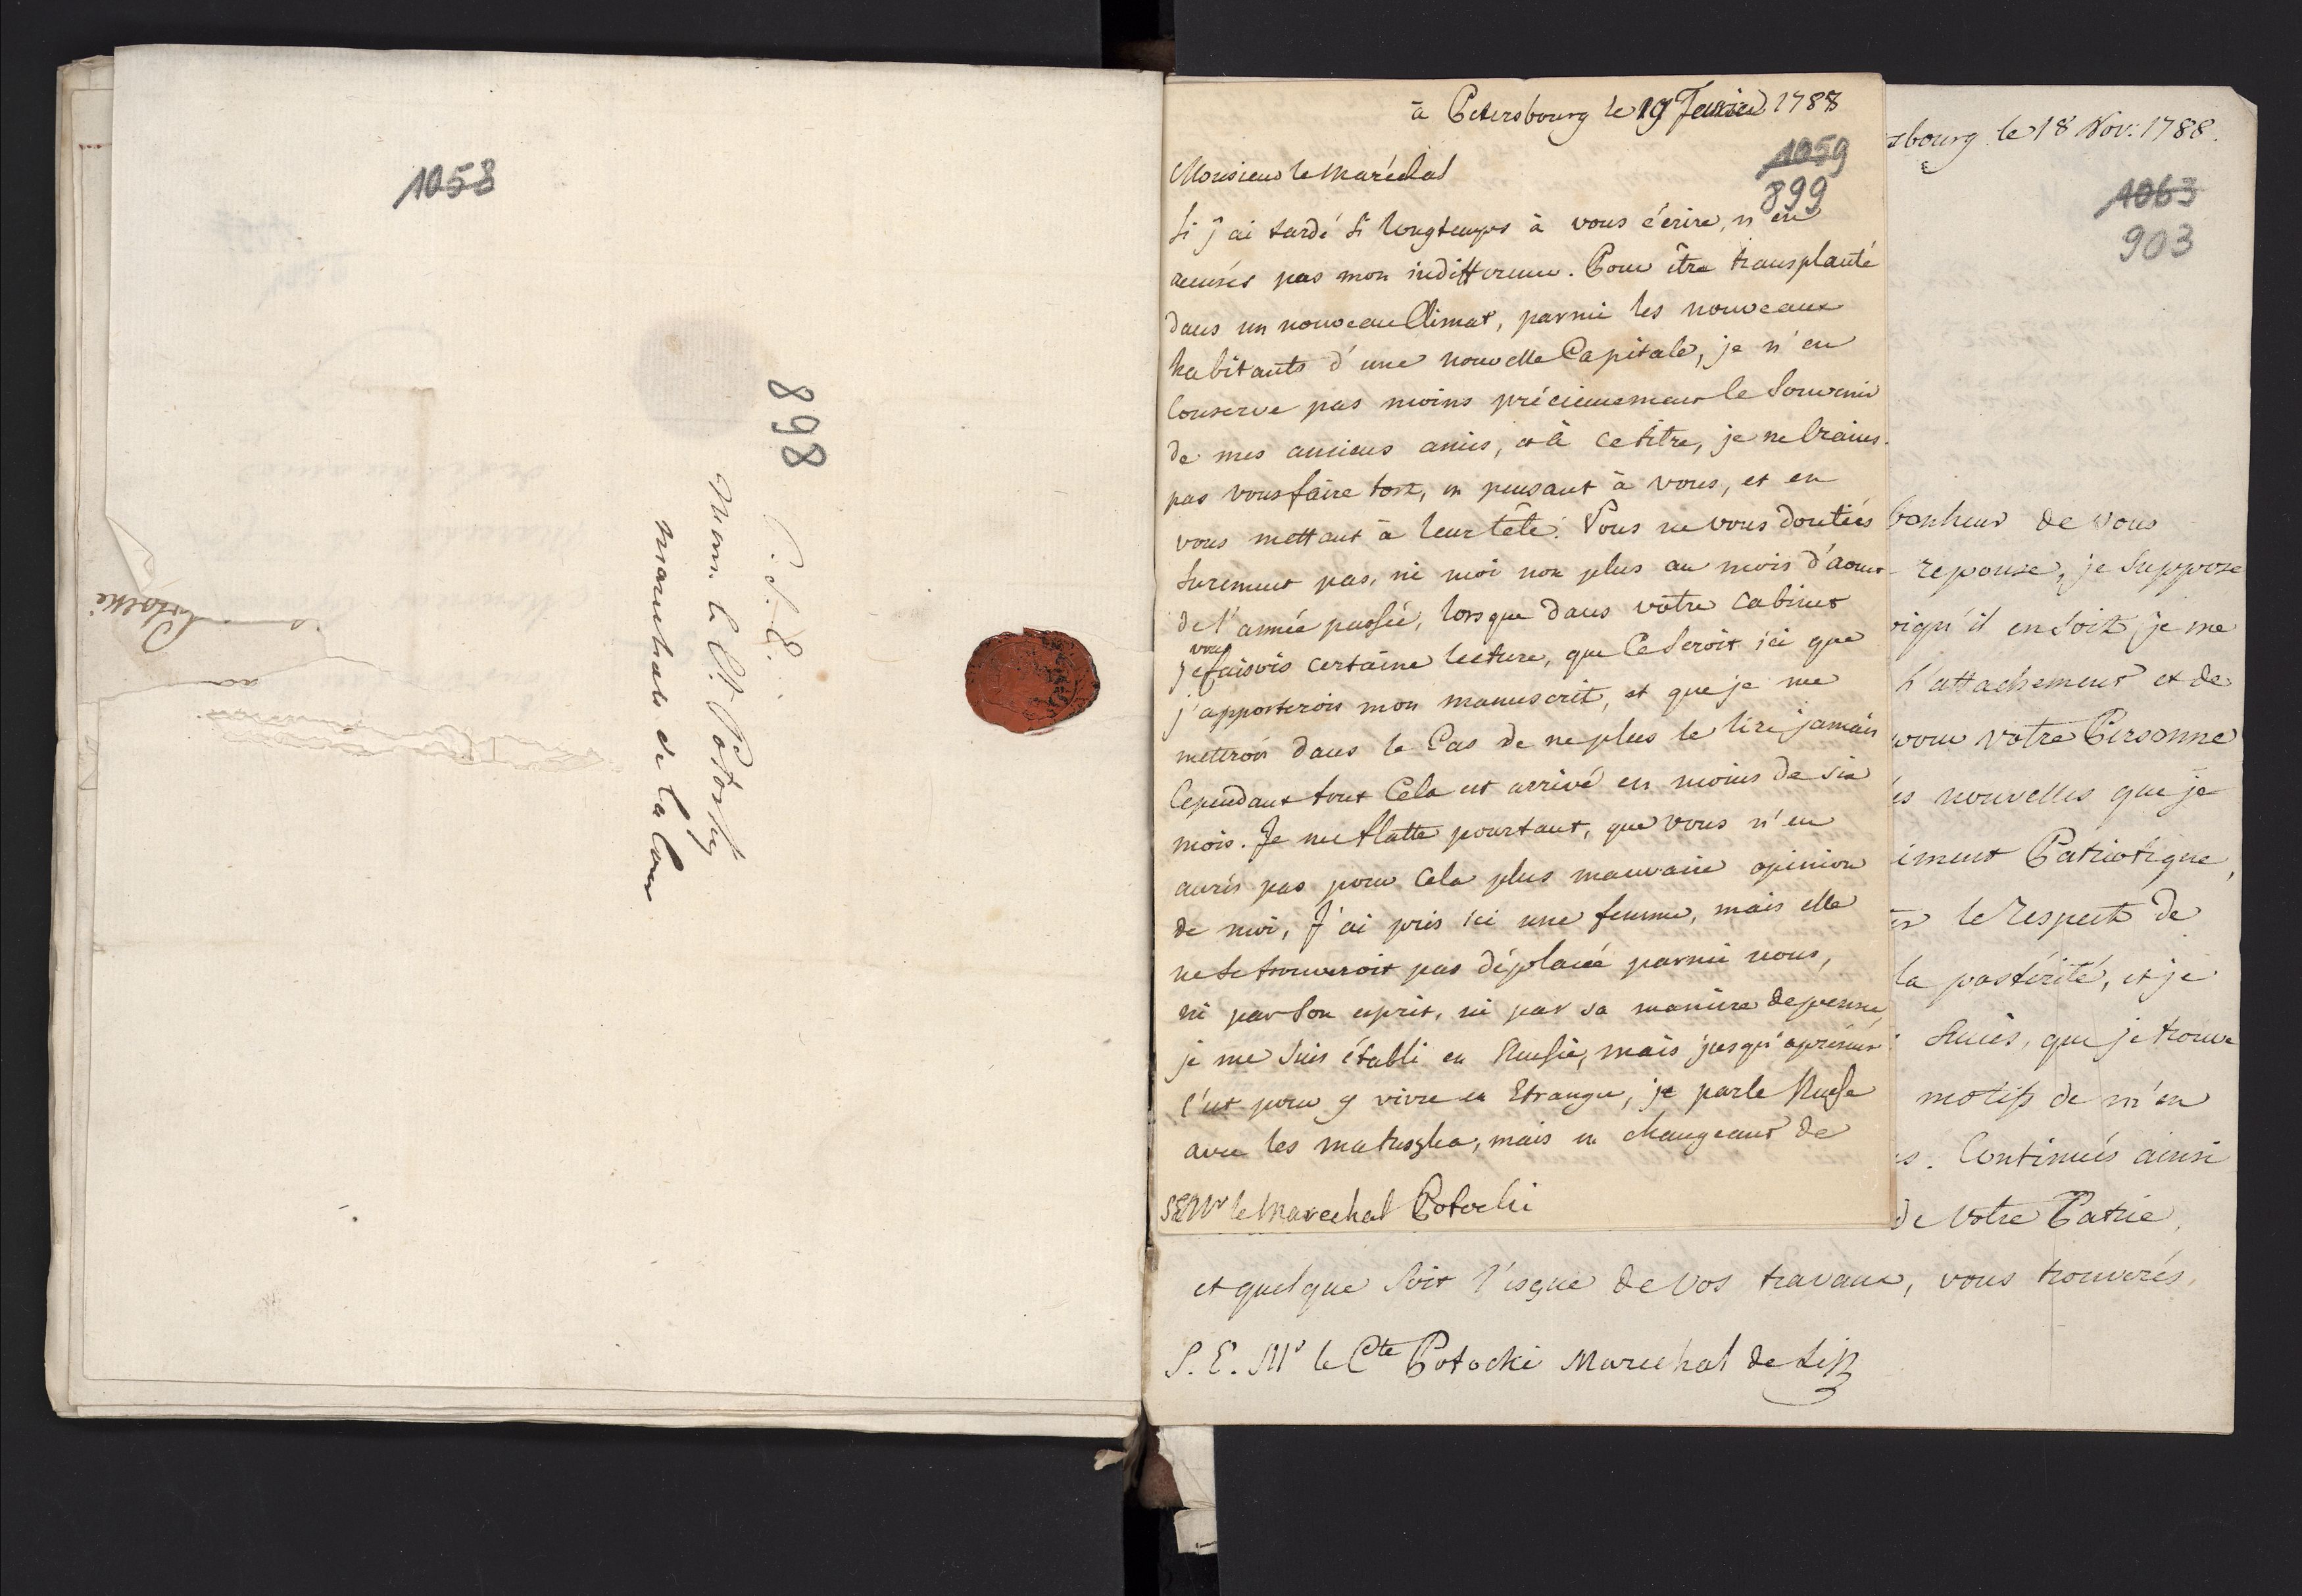 1058
898
C. S. E.
Mons. le Ct. Potosky
marechals de la Cour
Potocki
à Petersbourg le 19 Fevrier 1788
1059
899
Monsieur le Maréchal
Si j'ai tardé si longtemps à vous écrire, n'en
accusés pas mon indifference. Pour être transplanté
dans un nouveau Climat, parmi les nouveaux
habitants d'une nouvelle Capitale, je n'en
Conserve pas moins précieusement le Souvenir
de mes anciens amis, et à ce titre, je ne Crains
pas vous faire tort, en pensant à vous, et en
vous mettant à leur tête. Vous ne vous doutiés
Surement pas, ni moi non plus au mois d'aout
de l'année passée, lorsque dans votre Cabinet
je vous faisois certaine lecture, que Ce Seroit ici que
j'apporterois mon manuscrit, et que je me
metterois dans le Cas de ne plus le lire jamais
Cependant tout Cela est arrivé en moins de six
mois. Je me flatte pourtant, que vous n'en
aurés pas pour Cela plus mauvaise opinion
de moi, J'ai pris ici une femme, mais elle
ne Se trouveroit pas déplacée parmi nous,
ni par Son esprit, ni par sa maniere de penser,
je me Suis établi en Russie, mais jusqu'apresent
C'est pour y vivre en Etranger, je parle Russe
avec les matuszka, mais en changeant de
S E Mr le Marechal Potocki
sbourg le 18 Nov: 1788.
1063
903
bonheur de vous
reponse, je Suppose
oiqu'il en Soit, je me
l'attachement et de
pour votre Personne
es nouvelles que je
iment Patriotique,
er le respect de
la postérité, et je
Succès, que je trouve
motifs de m'en
s. Continués ainsi
de Votre Patrie,
et quelque Soit l'issue de Vos travaux, vous trouverés,
S. E. Mr le Cte Potocki Marechal de Litt